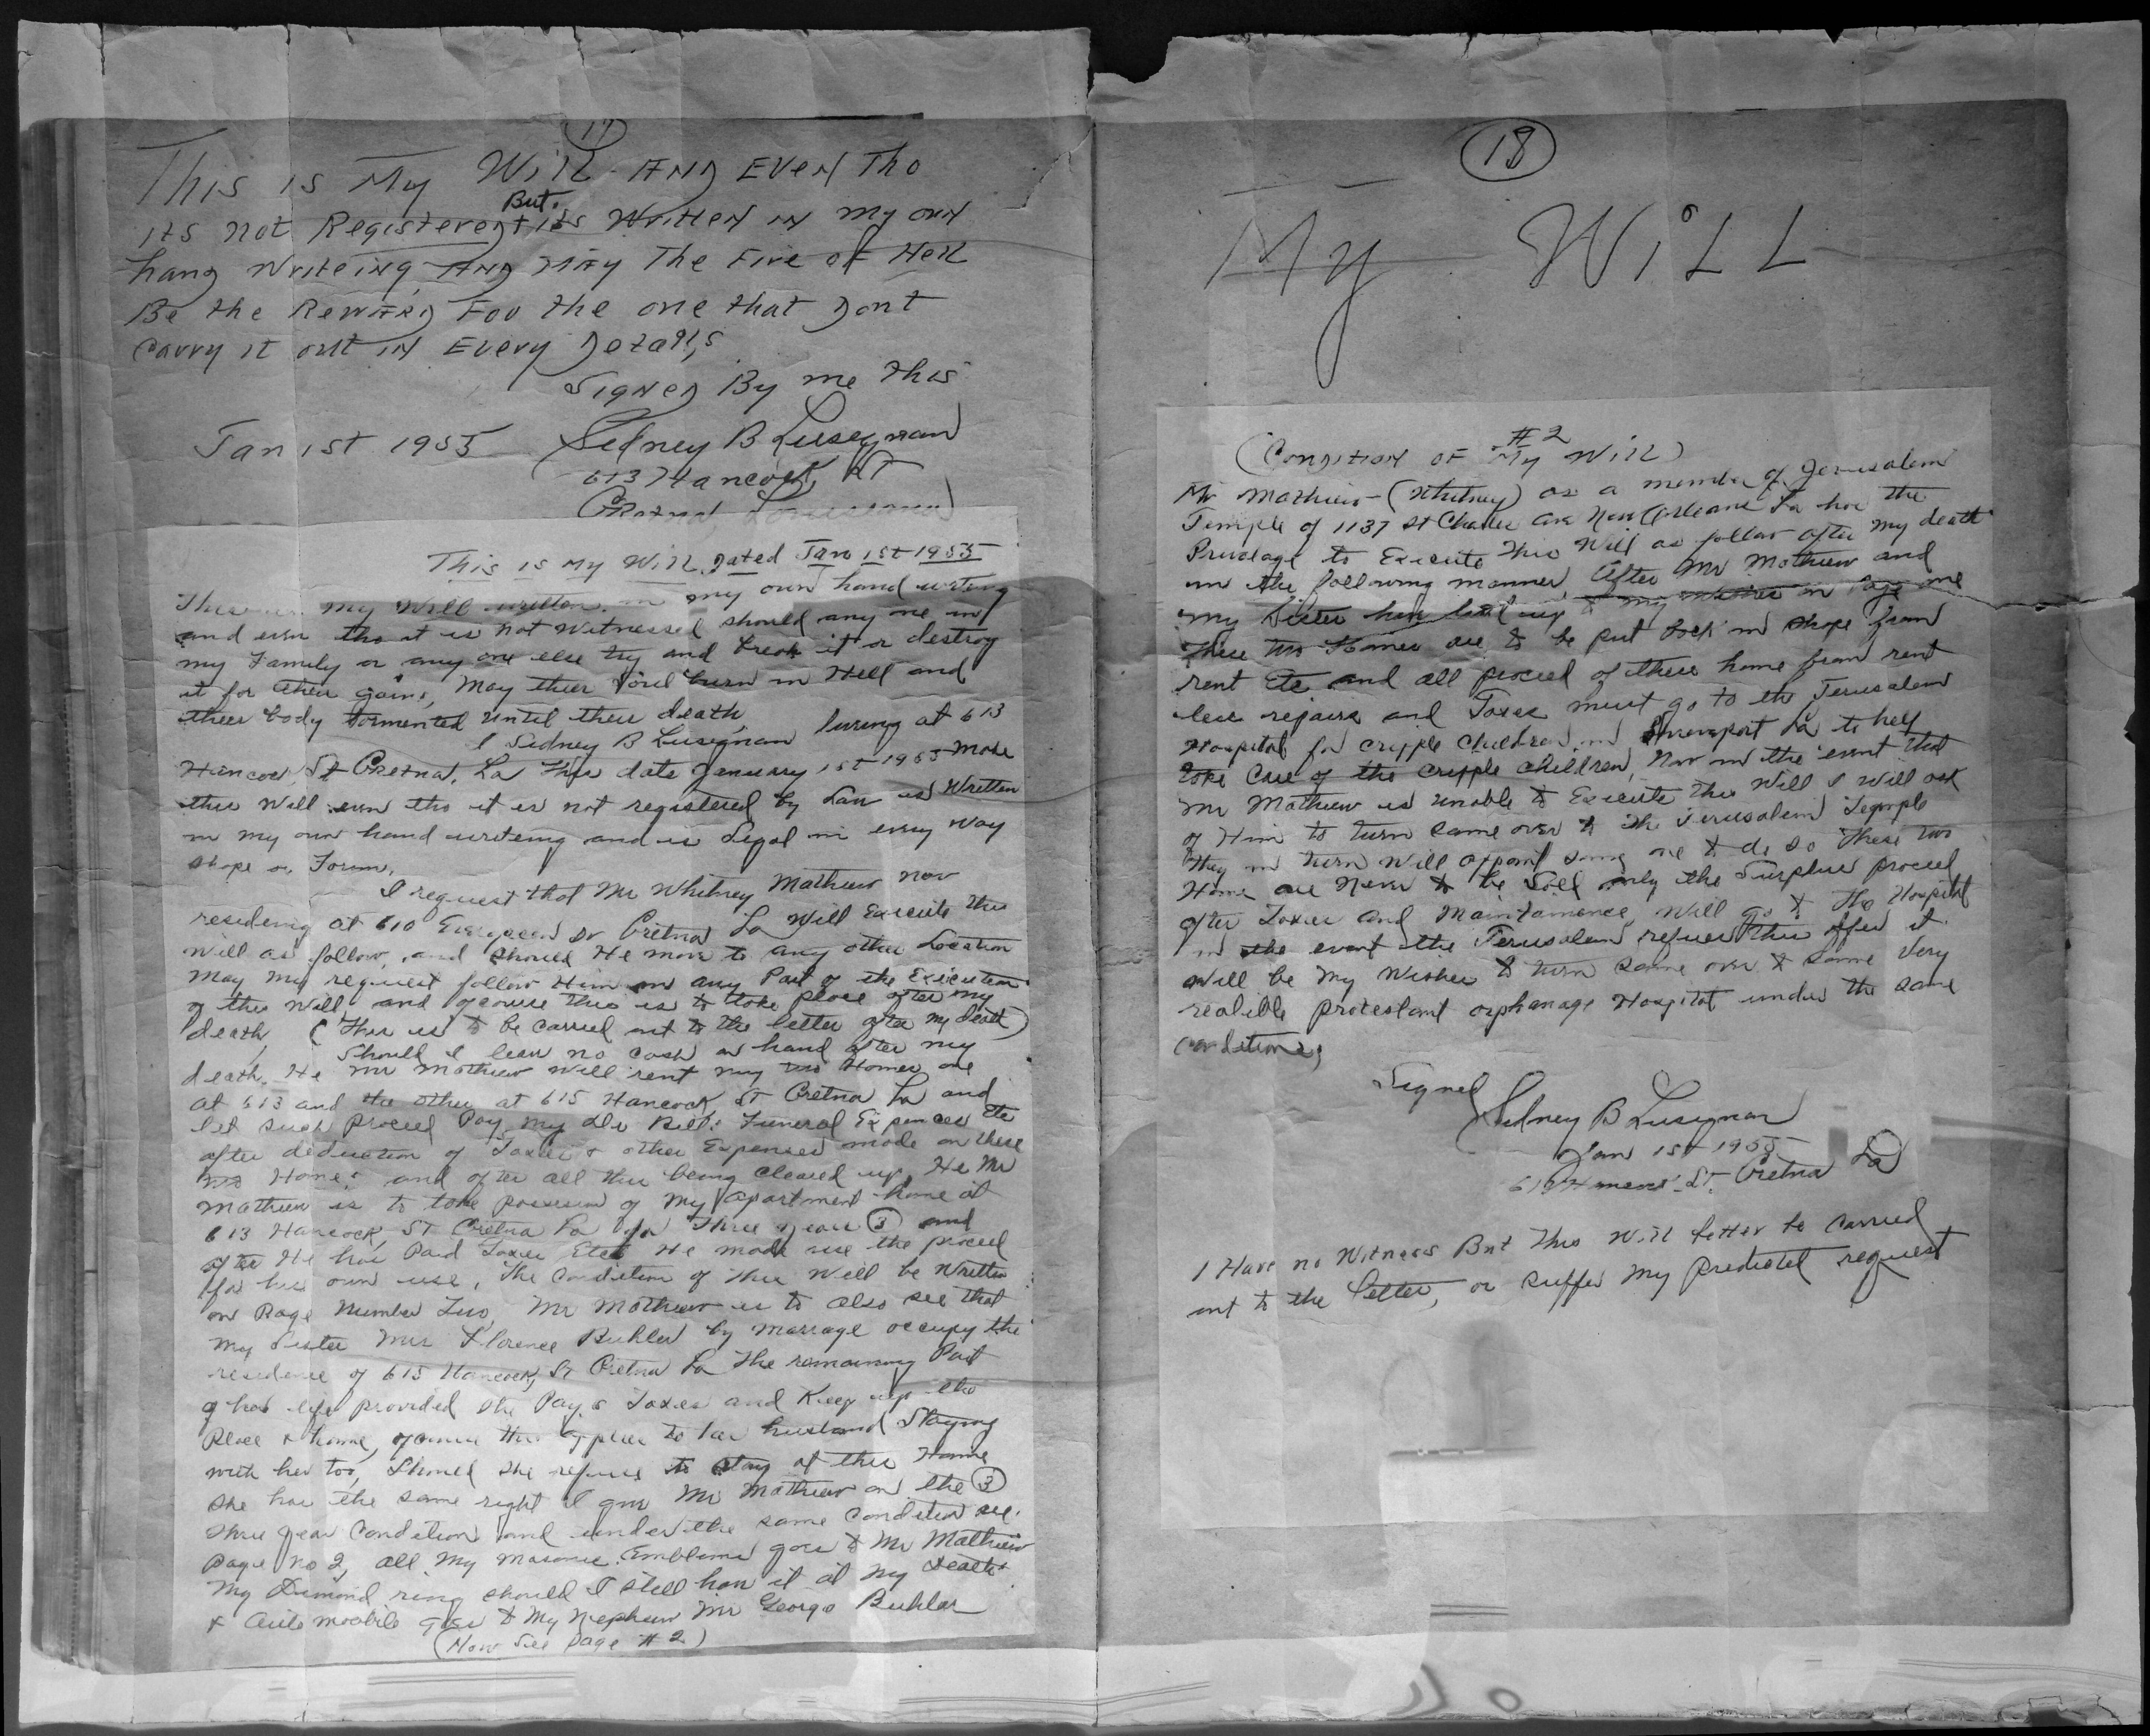 17
This is My Will AND EVEN Tho
But.
its not Registered, its Written in my own
hand Writeing, AND MAY The Fire of Hell
Be the REWARD Fou the one that Dont
Carry it out in Every Detail,s
SIGNED By me this
Jan 1st 1955 Sidney B Lusignan
613 Hancock, St
Gretna Louisiana
This is my Will, Dated Jan 1st 1955
This is my Will written in my own hand writing
and even tho it is not witnessed should any one in
my Family or any one else try and break it or destroy
it for their gains, May their Soul burn in Hell and
their body tormented until their death,
I Sidney B Lusignan living at 613
Hancock St Gretna, La this date January 1st 1955 Make
this Will even tho it is not registered by Law is Written
in my own hand writeing and is Legal in every way
shape or Forum.
I request that Mr Whitney Mathew now
resideing at 610 Evergreen Dr Gretna La Will Execute this
Will as follow, and should He move to any other Location
may my request follow Him in any Part of the Execution
of this Will and ofcourse this is to take place after my
death, (This is to be carried out to the letter after my death)
Should I leave no cash on hand after my
death, He Mr Mathew will rent my two Homes one
at 613 and the other at 615 Hancock St Gretna La and
let such proceed Pay my Bills Funeral Expences etc
after deduction of Taxes & other Expenses made on these
two Homes and after all this being cleared up, He Mr
Mathew is to take possesion of my apartment home at
613 Hancock, ST Gretna La for Three years (3) and
after He has Paid Taxes Etc He made use the proceed
for his own use, The condition of this Will be Written
on Page Number Two, Mr Mathew is to also see that
my sister Mrs Florence Buhler by marrage occupy the
residence of 615 Hancock, St Gretna La the remaining Part
of her life provided she Pay,s Taxes and Keep up the
Place & home, ofcourse this applies to her husband Staying
with her too, Should she refuse to stay at this Home
she has the same right I give Mr Mathew on the (3)
three year condition and under the same condition see
page no 2, all my masonic Emblems goes to Mr Mathew
My Diamond ring should I still have it at my death
& Auto mobile goes to My Nephew Mr George Buhler
(Now See page # 2)
18
My WILL
#2
(Condition OF My Will)
Mr Mathew (Whitney) as a member of Jerusalem
Temple of 1137 St Charles Ave New Orleans La has the
Privalage to Execute this Will as follow after my death
in the following manner, After Mr Mathew and
my Sister has lived up to my wishes in Page one
These two Homes are to be put back in shape from
rent Etc and all proceed of these home from rent
less repairs and Taxes must go to the Jerusalem
Hospital for cripple Children in Shreveport La to help
take Care of the cripple children, Now in the event that
Mr Mathew is unable to Execute this Will I will ask
of Him to turn same over to the Jerusalem Temple
they in turn will appoint some one to do so These two
Home are Never to be Sold only the Surplus proceed
after Taxes and Maintainence, will go to the Hospital
in the event the Jerusalem refuse this offer it
will be my Wishes to turn same over to some Very
realible protestant orphanage Hospital under the same
conditions,
Signed
Sidney B Lusignan
Jan 1st 1955
St. Gretna La
I Have no Witness But this Will better be carried
out to the letter, or suffer my request